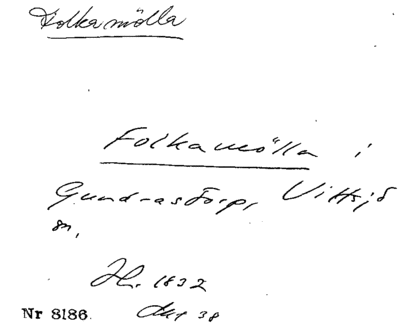 Folkamölla
Folkamölla i
Gundrastorp, Vittsjö
sn,
Hr. 1832
Nr 8186.